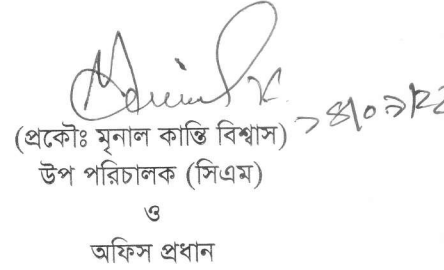 (প্রকৌঃ মৃনাল কান্তি বিশ্বাস)
উপ পরিচালক (সিএম)
ও
অফিস প্রধান